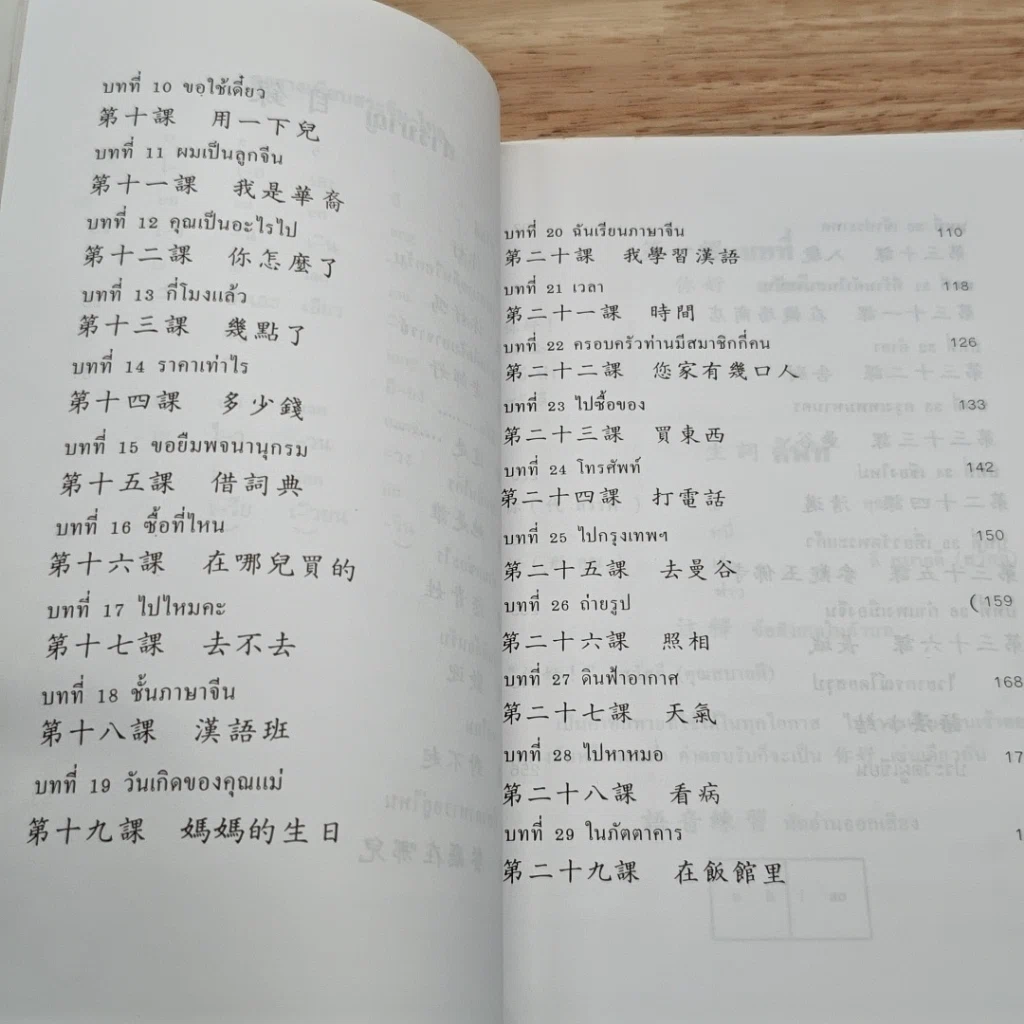 บทที่ 10 ขอใช้เดี๋ยว
第十課 用一下兒
บทที่ 11 ผมเป็นลูกจีน
第十一課 我是華裔
บทที่ 12 คุณเป็นอะไรไป
第十二課 你怎麼了
บทที่ 13 กี่โมงแล้ว
第十三課 幾點了
บทที่ 14 ราคาเท่าไร
第十四課 多少錢
บทที่ 15 ขอยืมพจนานุกรม
第十五課 借詞典
บทที่ 16 ซื้อที่ไหน
第十六課 在哪兒買的
บทที่ 17 ไปไหมคะ
第十七課 去不去
บทที่ 18 ชั้นภาษาจีน
第十八課 漢語班
บทที่ 19 วันเกิดของคุณแม่
第十九課 媽媽的生日
บทที่ 20 ฉันเรียนภาษาจีน 110
第二十課 我學習漢語
บทที่ 21 เวลา 118
第二十一課 時間
บทที่ 22 ครอบครัวท่านมีสมาชิกกี่คน 126
第二十二課 您家有幾口人
บทที่ 23 ไปซื้อของ 133
第二十三課 買東西
บทที่ 24 โทรศัพท์ 142
第二十四課 打電話
บทที่ 25 ไปกรุงเทพฯ 150
第二十五課 去曼谷
บทที่ 26 ถ่ายรูป (159
第二十六課 照相
บทที่ 27 ดินฟ้าอากาศ 168
第二十七課 天氣
บทที่ 28 ไปหาหมอ 17
第二十八課 看病
บทที่ 29 ในภัตตาคาร 1
第二十九課 在飯館里